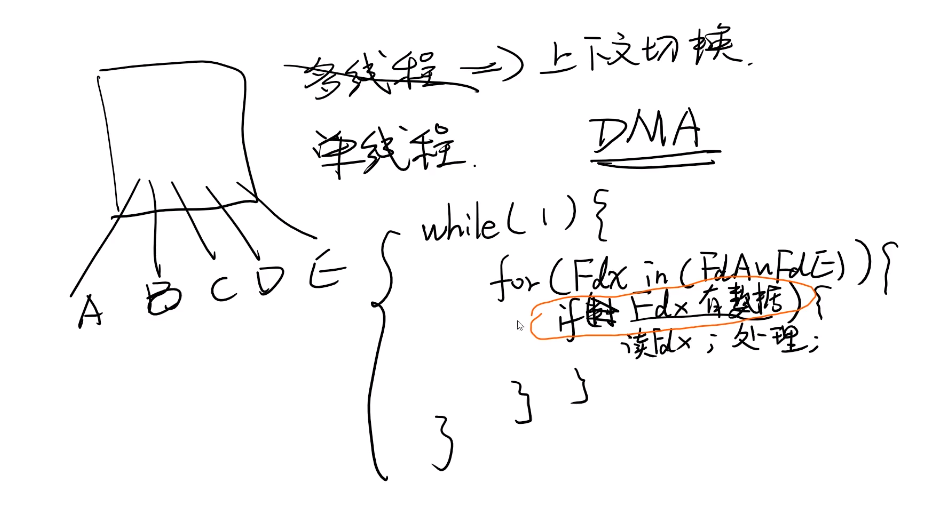 多线程 => 上下文切换.
单线程.
DMA
A B C D E
while(1){
for(Fdx in (FdA~FdE)){
if( Fdx 有数据){
读Fdx; 处理;
} }
}